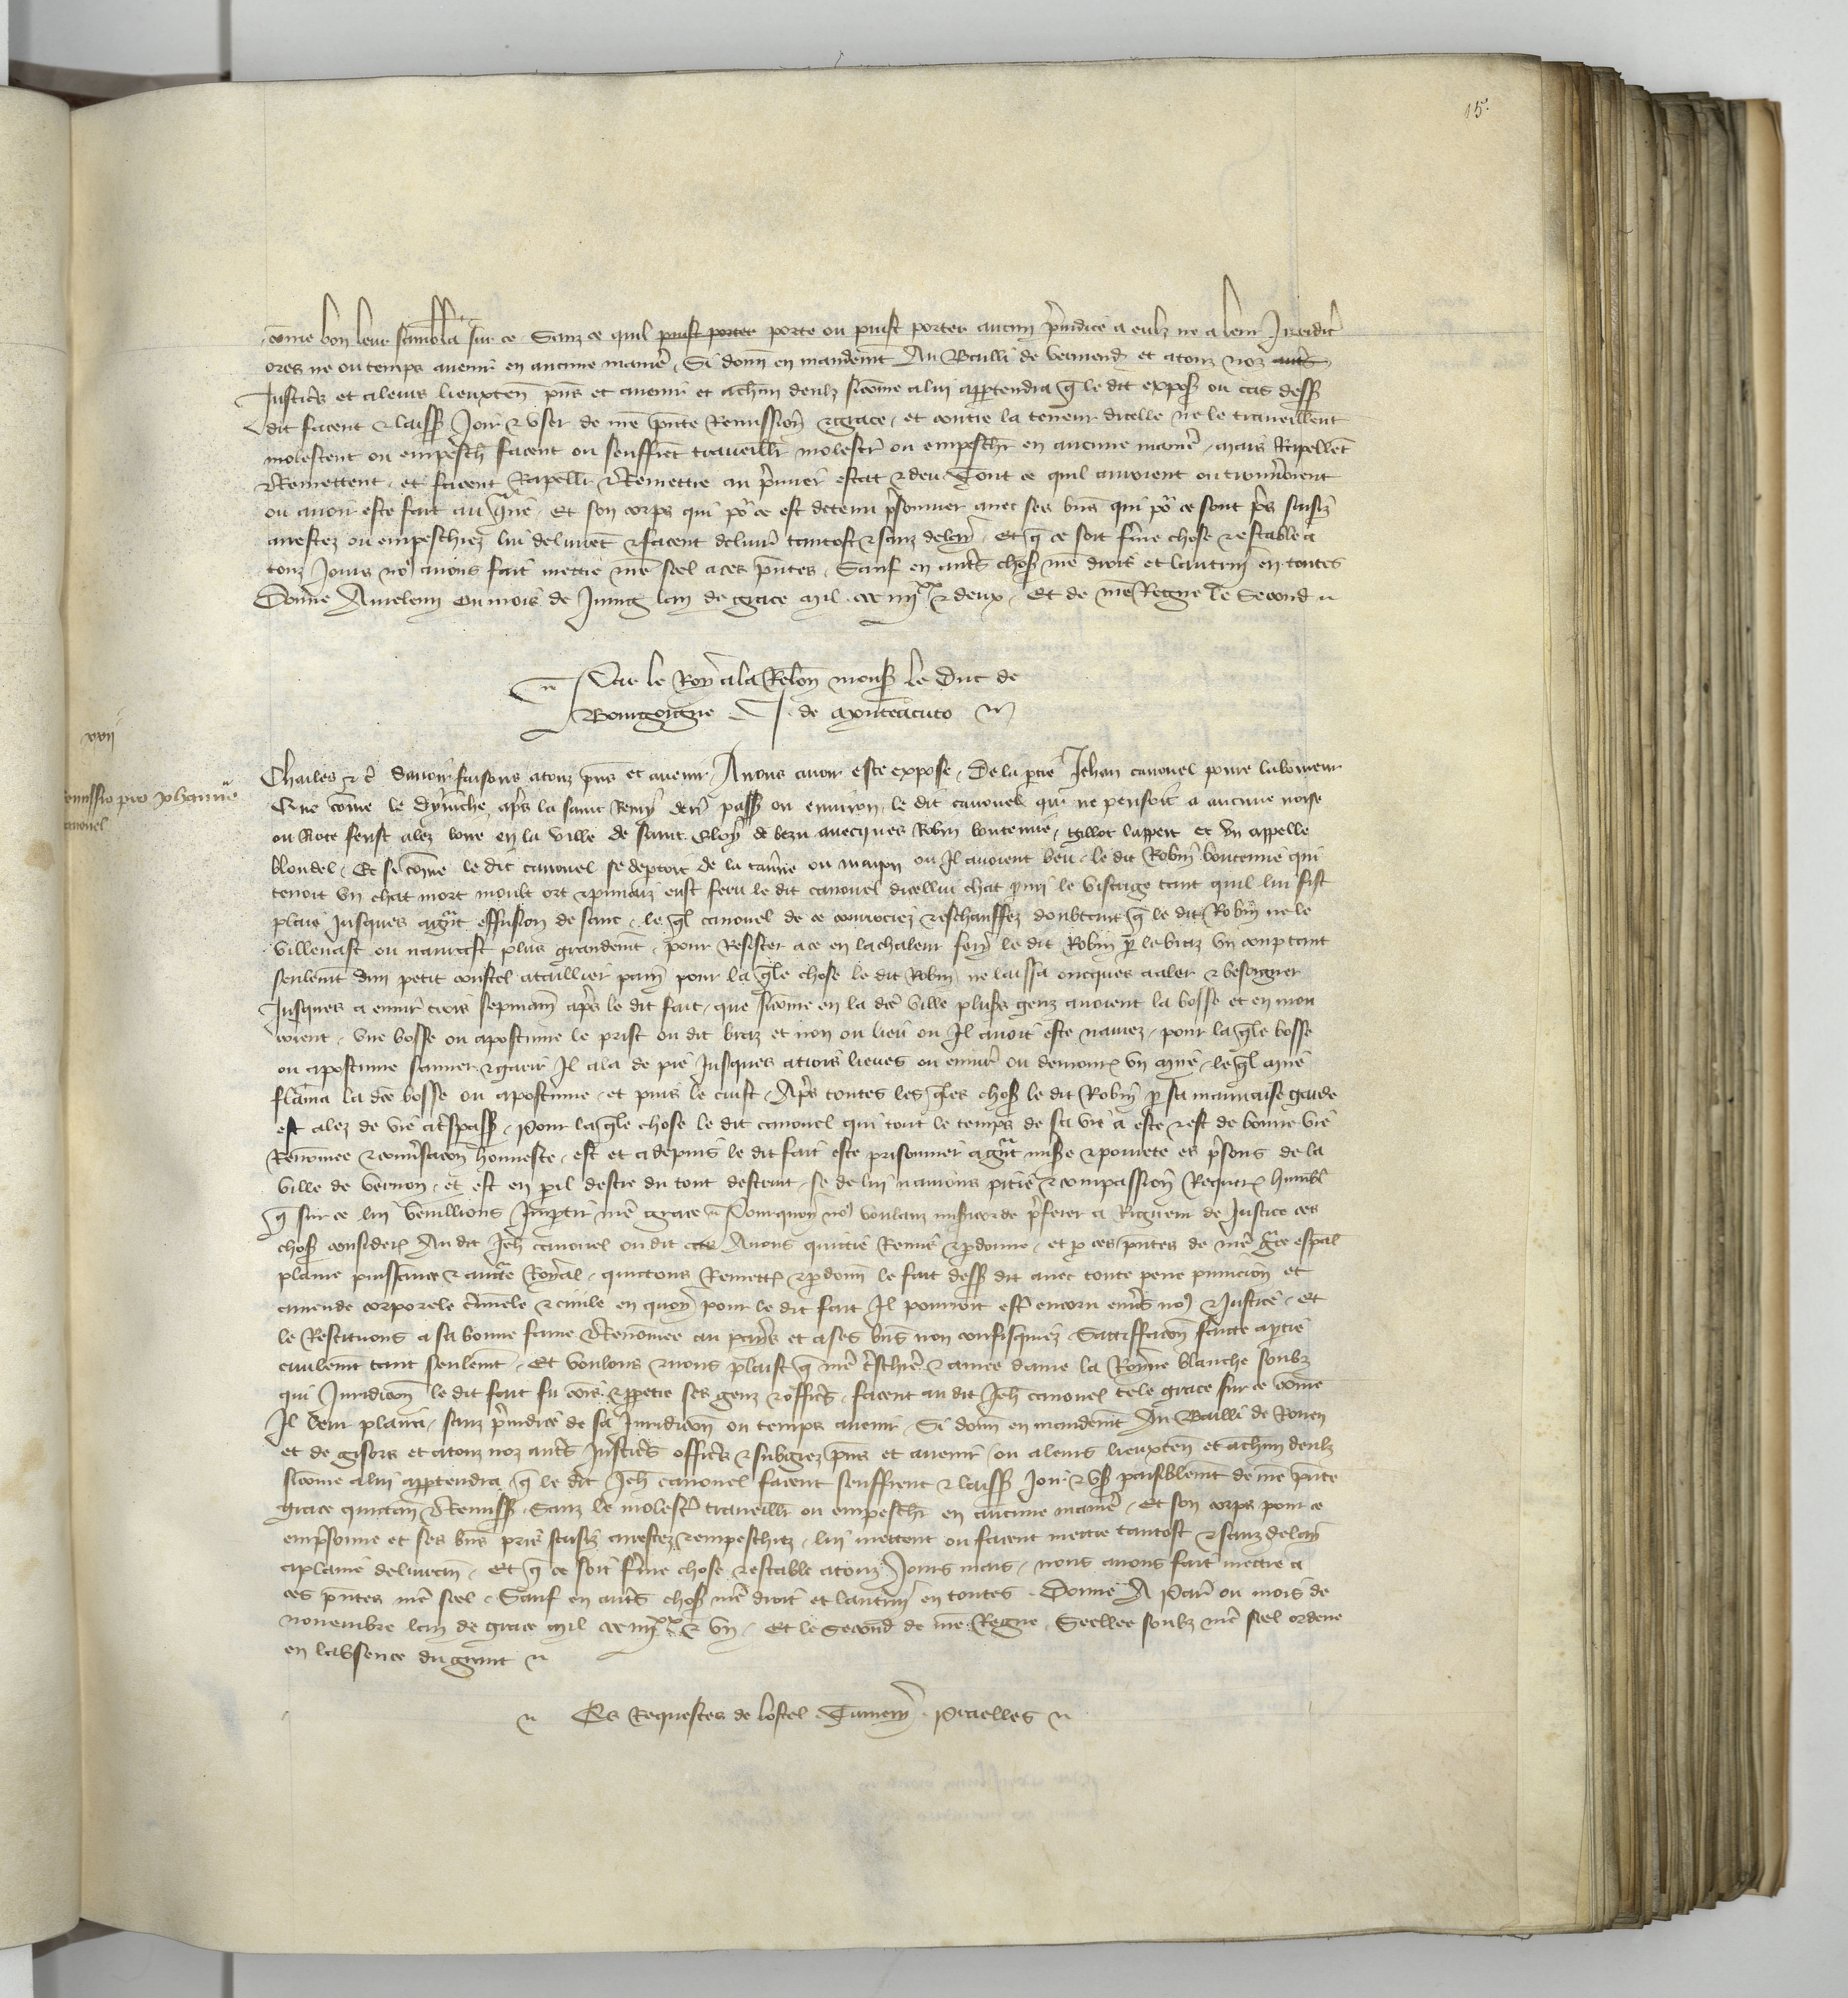 15.
come bon leur semblera sur ce. Sanz ce quil puist porter porte ou puist porter aucun preiudice a eulz ne a leur Juridicion
ores ne ou temps auenir en aucune maniere. Si donn en mandemt Au Bailli de vermend et a touz noz autres
Justiciers et a leurs lieuxten pns et auenir et a chun deulz sicome a lui appartendra q le dit expos ou cas dess
dit facent & laiss Joir & vser de nre pnte Remission & grace, et contre la teneur dicelle ne le traueillent
molestent ou empesch facent ou seuffrent traueillr molestr ou empeschr en aucune maniere, mais Rapellent
& Remettent, et facent Rapellr & Remettre au premier estat & deu Tout ce quil auroient ou trouueroient
ou auoir este fait au contre. Et son corps qui po ce est detenu prisonnier auec ses bns qui po ce sont pris saisiz
arrestez ou empeschiez lui deliurent & facent deliurer tantost & sanz delay. Et q ce soit ferme chose & estable a
touz Jours no auons fait mettre nre seel a ces pntes, Sauf en autres choses nre droit et lautruy en toutes
Donne A meleun Ou mois de Juing lan de grace mil. ccc iiijxx & deux, Et de nre Regne le Second
Par le Roy a la Relon mons le Duc de
Bourgoigne J. de Monteacuto
xvij
Remissio pro Johanne
canouel
Charles &c Sauoir faisons a touz pns et auenir, A nous auoir este expose, De la partie Jehan canouel poure laboureur
Que come le dymenche apres la saint Remy derr pass ou enuiron, le dit canouel qui ne pensoit a aucune noise
ou Riote feust alez boire en la ville de saint Eloy de bezu auecques Robin boutennie, Gillot lappert et vn appelle
blondel, Et se come le dit canouel se deptoit de la tauerne ou maison ou Il auoient beu, le dit Robin boutennie qui
tenoit vn chat mort moult ort & punaiz eust feru le dit canouel dicellui chat parmi le visaige tant quil lui fist
plaie Jusques a grant effusion de sanc, le ql canouel de ce courrociez & eschauffez doubtant q le dit Robin ne le
villenast ou naurast plus grandemt, pour Resister a ce en la chaleur fery le dit Robin par le braz vn coup tant
seulemt dun petit coustel a taillier pain pour la qle chose le dit Robin ne laissa oncques a aler & besongner
Jusques a enuir trois sepmain apres le dit fait, que sicome en la dte ville pluss genz auoient la bosse et en mou
roient, vne bosse ou apostume le prist ou dit braz et non ou lieu ou Il auoit este naurez, pour la qle bosse
ou apostume saner & garir Il ala de pie Jusques a trois lieues ou enuir ou demouroit vn mire, le ql mire
flama la dte bosse ou apostume, et puis le cuist, Apres toutes les qles choses le dit Robin par sa mauuaise garde
est alez de vie a trespass, Pour la qle chose le dit canouel qui tout le temps de sa vie a este & est de bonne vie
Renomee & conuersacion honneste, est et a depuis le dit fait este prisonnier a grant misere & pourete es prisons de la
ville de vernon, et est en peril destre du tout destruit, se de lui nauions pitie & compassion Requerant humblemt
q sur ce lui vueillions Impartir nre grace Pour quoy no voulanz misericorde preferer a Rigueur de Justice ces
choses considerees Au dit Jeh canouel ou dit cas Auons quittie Remis & pardonne, et par ces pntes de nre grace espal
plaine puissance & auctorite Royal, quittons Remettons & pardonn le fait dess dit auec toute peine punicion et
amende corporele criminele & ciuile en quoy pour le dit fait Il pourroit estre encoru enuers no & Justice, Et
le Restituons a sa bonne fame & Renomee au pays et a ses bns non confisquiez Satisffacion faicte a partie
ciuilemt tant seulemt, Et voulons & nous plaist q nre treschiere & amee dame la Royne blanche soubz
qui Juridicion le dit fait fu comis & perpetre ses genz & officiers, facent au dit Jeh canouel tele grace sur ce come
Il leur plaira, sanz preiudice de sa Juridicion ou temps auenir. Si donn en mandemt Au Bailli de Rouen
et de gisors et a touz noz autres Justiciers officiers & subgiez pns et auenir ou a leurs lieuxten et a chun deulz
sicome a lui appartendra q le dit Jeh canouel facent seuffrent & laiss Joir & vser paisiblemt de nre pnte
grace quittance & Remission Sanz le molestr traueillr ou empeschr en aucune maniere, Et son corps pour ce
emprisonne et ses bns pris saisiz arrestez & empeschiez, lui mettent ou facent mettre tantost & sanz delay
a plaine deliurance, Et q ce soit ferme chose & estable a touz Jours mais, nous auons fait mettre a
ces pntes nre seel, Sauf en autres choses nre droit et lautruy en toutes. Donne A Paris ou mois de
nouembre lan de grace mil ccc iiijxx & vn, Et le Second de nre Regne, Seellee soubz nre seel ordene
en labsence du grant
Es Requestes de lostel Dumeny. Praelles